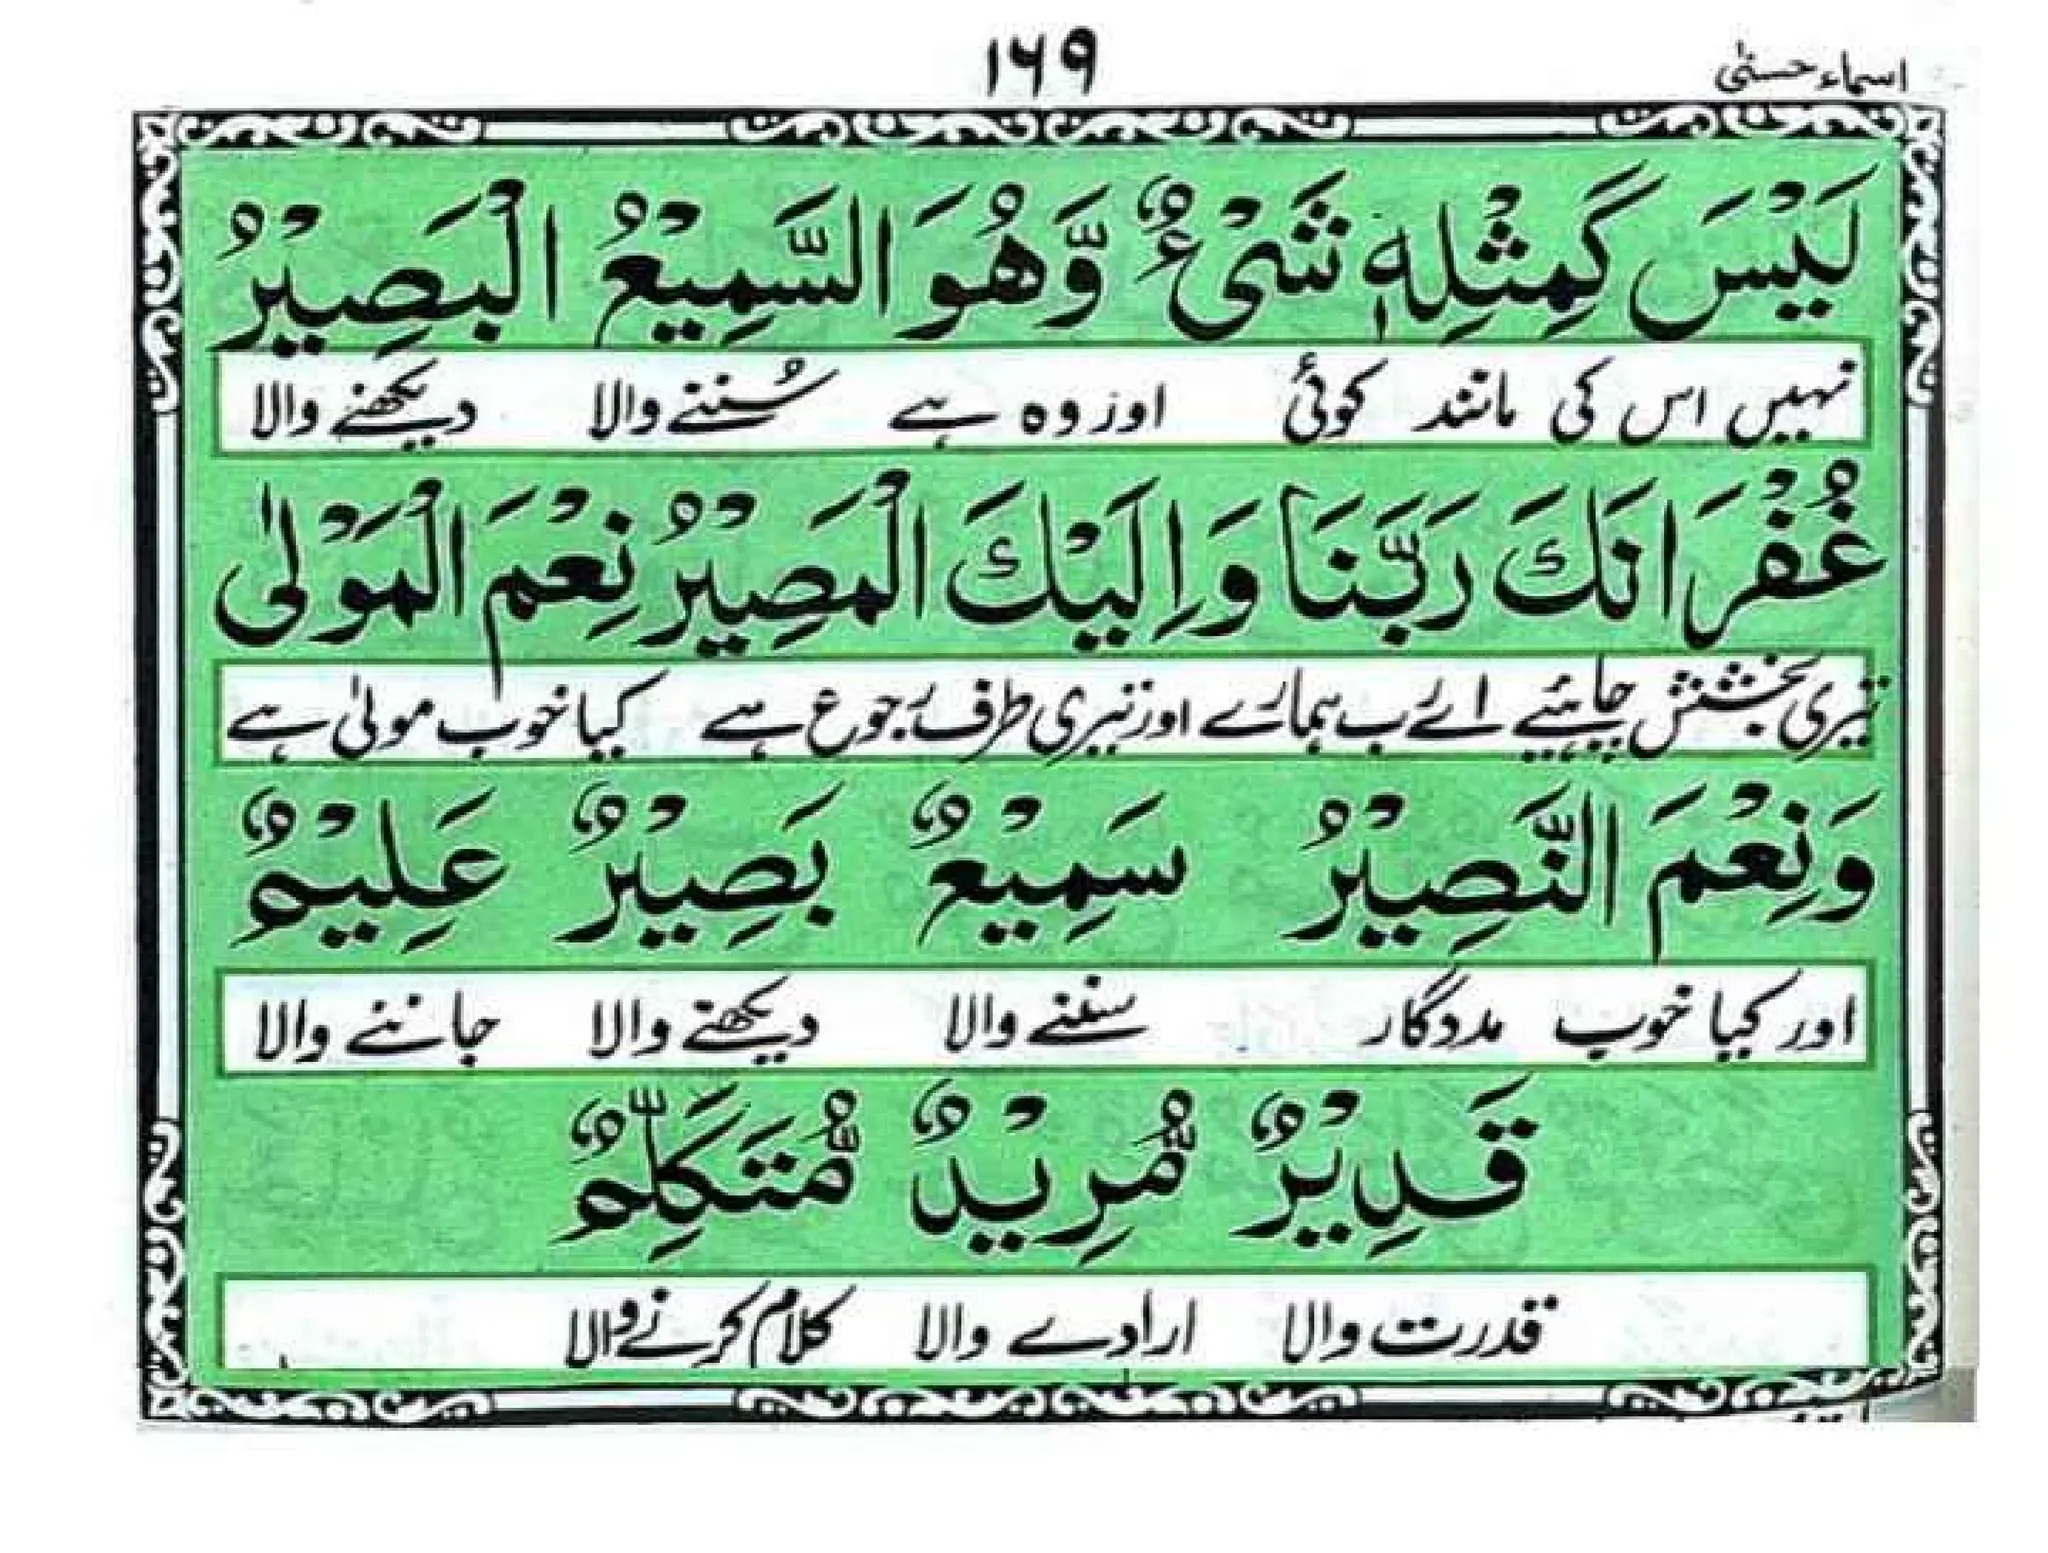 اسماء حسنیٰ
۱۶۹
لَيْسَ كَمِثْلِهٖ شَيْءٌ وَّهُوَ السَّمِيْعُ الْبَصِيْرُ
نہیں اس کی مانند کوئی اور وہ ہے سُننے والا دیکھنے والا
غُفْرَانَكَ رَبَّنَا وَاِلَيْكَ الْمَصِيْرُ نِعْمَ الْمَوْلٰى
تیری بخشش چاہئیے اے رب ہمارے اور تیری طرف رجوع ہے کیا خوب مولیٰ ہے
وَنِعْمَ النَّصِيْرُ سَمِيْعٌ بَصِيْرٌ عَلِيْمٌ
اور کیا خوب مددگار سننے والا دیکھنے والا جاننے والا
قَدِيْرٌ مُّرِيْدٌ مُّتَكَلِّمٌ
قدرت والا ارادے والا کلام کرنے والا